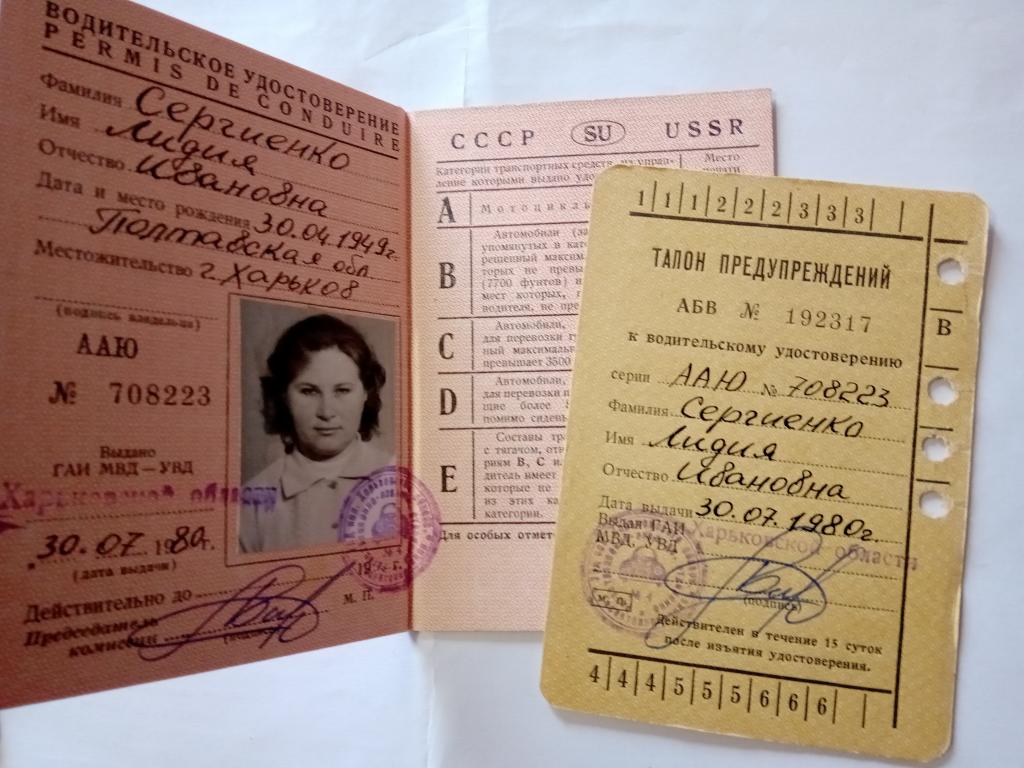 ВОДИТЕЛЬСКОЕ УДОСТОВЕРЕНИЕ
PERMIS DE CONDUIRE
Фамилия Сергиенко
Имя Лидия
Отчество Ивановна
Дата и место рождения 30.04.1949г.
Полтавская обл
Местожительство г. Харьков
(подпись владельца)
ААЮ
№ 708223
Выдано
ГАИ МВД—УВД
Харьковской области
30.07.1980г.
(дата выдачи)
Действительно до
М. П.
Председатель
комиссии
СССР SU USSR
Категории транспортных средств, на управ-
ление которыми выдано удо
Место
печати
A Мотоциклы
B Автомобили (за
упомянутых в кате
решенный максим
торых не превы
(7700 фунтов) и
мест которых,
водителя, не пре
C Автомобили,
для перевозки г
ный максималь
превышает 3500
D Автомобили,
для перевозки п
щие более 8
помимо сидень
E Составы тр
с тягачом, отн
риям В, С и
дитель имеет
которые не
из этих ка
категории.
Для особых отмет
1 1 1 2 2 2 3 3 3
ТАЛОН ПРЕДУПРЕЖДЕНИЙ
АБВ № 192317
В
к водительскому удостоверению
серии ААЮ № 708223
Фамилия Сергиенко
Имя Лидия
Отчество Ивановна
Дата выдачи 30.07.1980г.
Выдан ГАИ
МВД, УВД
Харьковской области
(подпись)
М. П.
Действителен в течение 15 суток
после изъятия удостоверения.
4 4 4 5 5 5 6 6 6